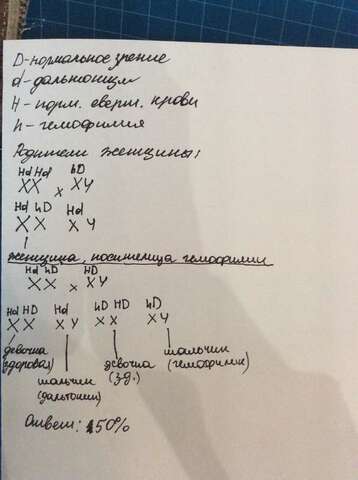 D-нормальное зрение
d-дальтонизм
H-норм. сверт. крови
h-гемофилия
Родители женщины:
Hd Hd hD
XX x XY
Hd hD Hd
X X XY
женщина, носительница гемофилии
Hd hD HD
XX x XY
Hd HD Hd hD HD hD
X X XY X X XY
девочка (здоровая)
мальчик (дальтоник)
девочка (зд.)
мальчик (гемофилик)
Ответ: 50%